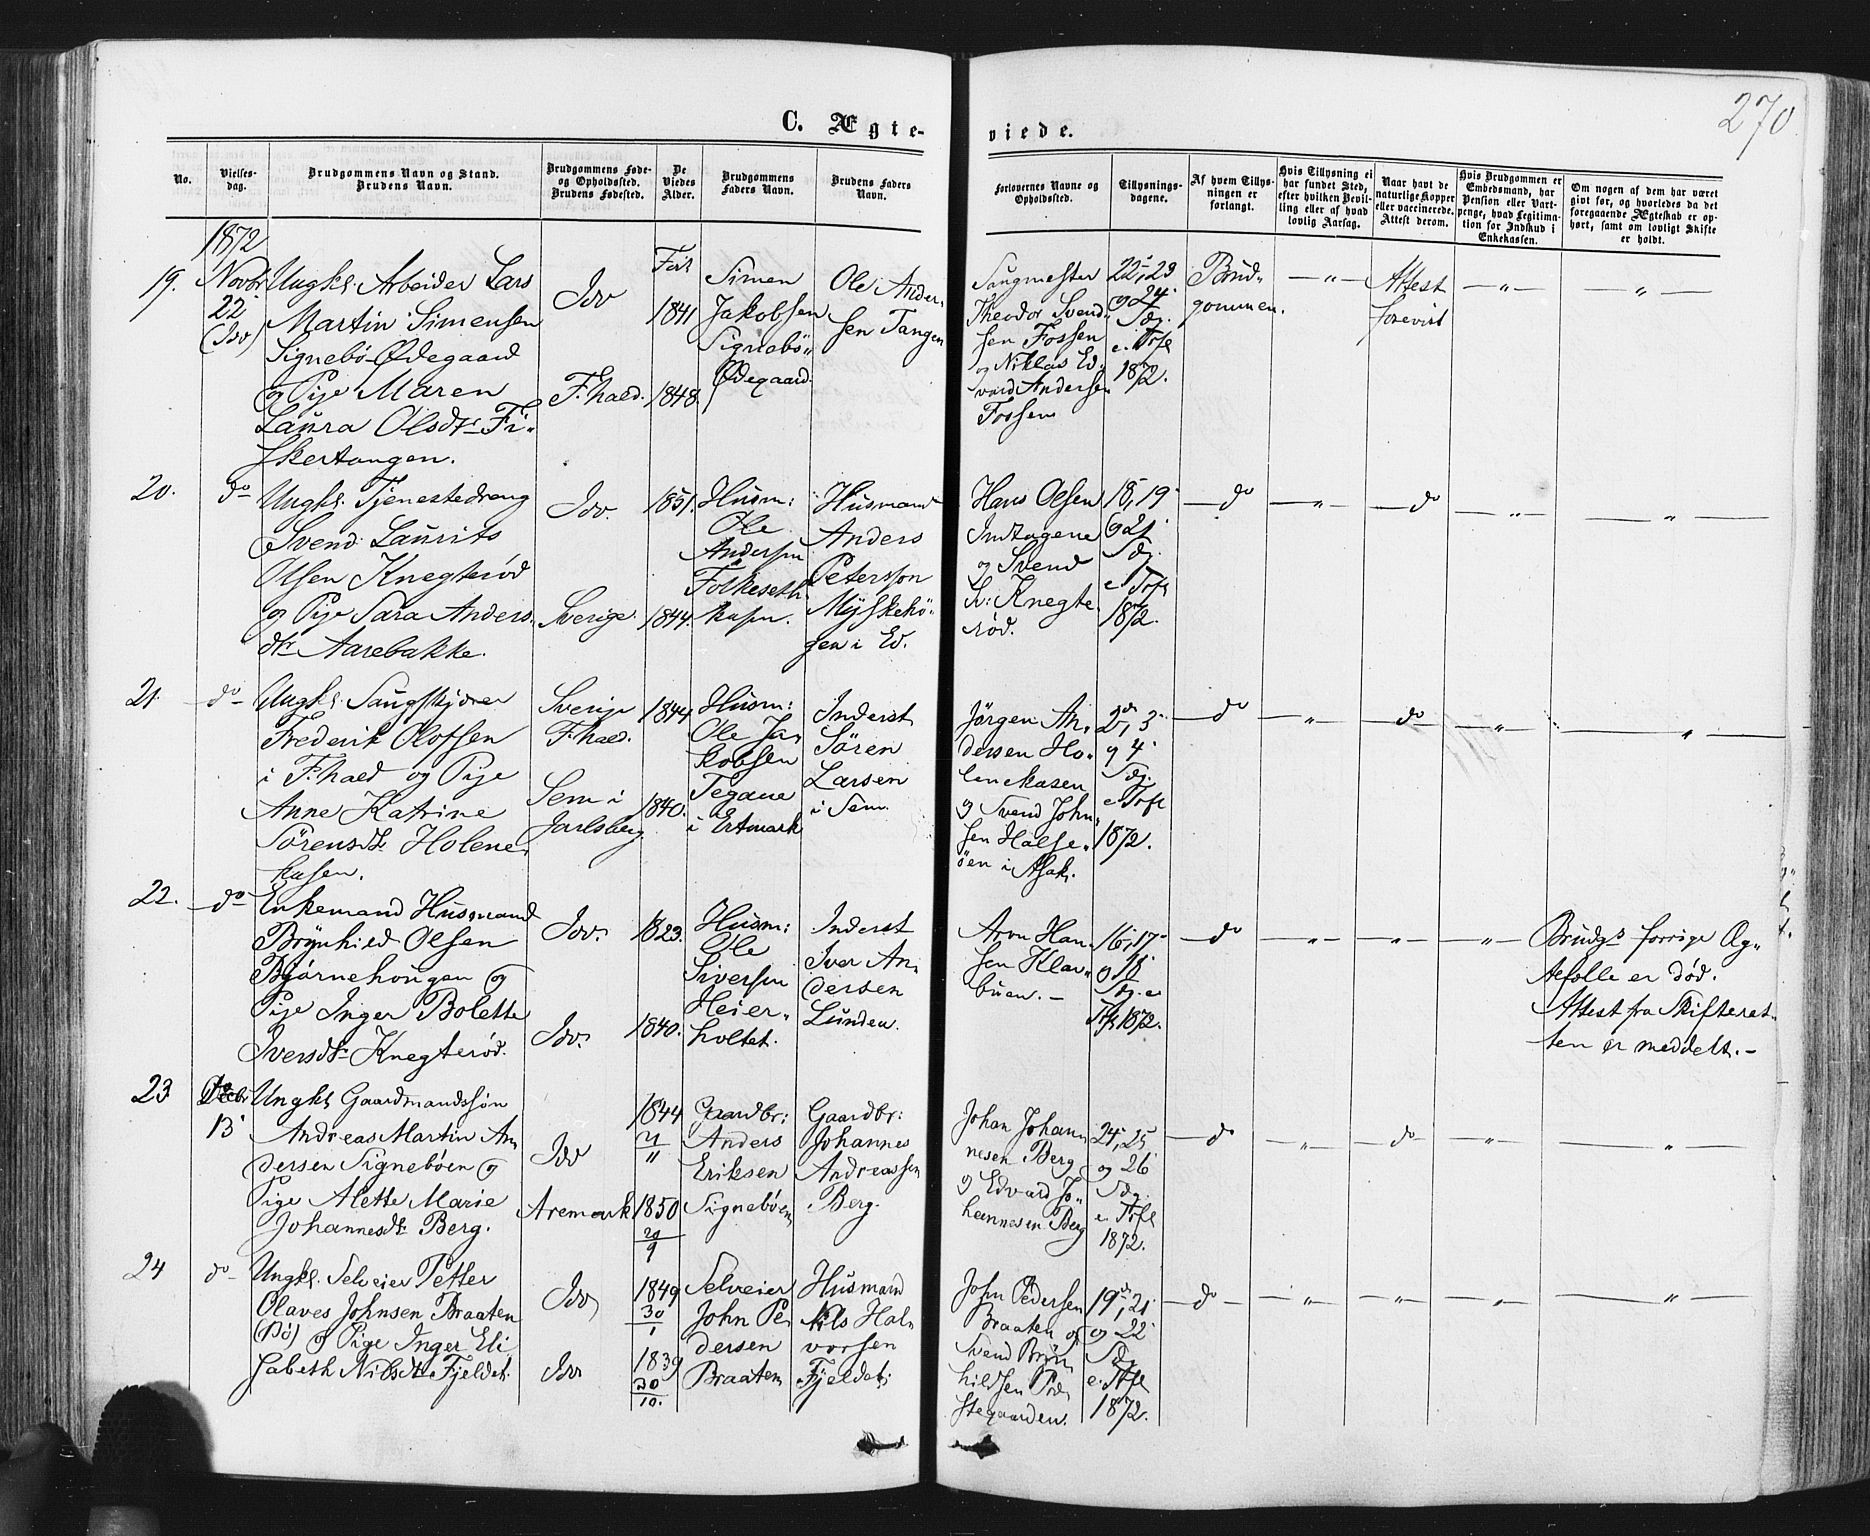 270
C. Ægte-
viede.
No.
Vielses-
dag.
Brudgommens Navn og Stand.
Brudens Navn.
Brudgommens Føde-
og Opholdssted.
Brudens Fødested.
De
Viedes
Alder.
Brudgommens
Faders Navn.
Brudens Faders
Navn.
Forlovernes Navne og
Opholdssted.
Tillysnings-
dagene.
Af hvem Tillys-
ningen er
forlangt.
Hvis Tillysning ei
har fundet Sted,
efter hvilken Bevil-
ling eller af hvad
lovlig Aarsag.
Naar havt de
naturlige Kopper
eller vaccinerede.
Attest derom.
Hvis Brudgommen er
Embedsmand, har
Pension eller Vart-
penge, hvad Legitima-
tion for Indskud i
Enkekassen.
Om nogen af dem har været
gift før, og hvorledes da det
foregaaende Ægteskab er op-
hørt, samt om lovligt Skifte
er holdt.
1872
19.
Novbr
22
(Idv)
Ungkl. Arbeider Lars
Martin Simensen
Signebø-Ødegaard
og Pige Maren
Laura Olsdtr Fi-
skertangen.
Idv
F:hald.
Født
1841
1848.
Simen
Jakobsen
Signebø-
Ødegaard.
Ole Ander-
sen Tangen
Saugmester
Theodor Svend-
sen Fossen
og Niklas Ed-
vard Andersen
Fossen
22, 23
og 24
Sdg.
e. Trft
1872.
Brud-
gommen.
— " —
Attest
forevist
— " —
— " —
20.
do
Ungkl. Tjenestedreng
Svend Laurits
Olsen Knegterød
og Pige Sara Anders
dtr Aarebakke.
Idv.
Sverige.
1851.
1844.
Husm:
Ole
Andersen
Folkeseth-
kasen.
Husmand
Anders
Petersson
Myskehö-
gen i Ed.
Hans Olsen
Indtagene
og Svend
L: Knegte-
rød.
18, 19
og 21
Sdg.
e. Trft
1872.
— do
— " —
— do
— " —
— " —
21.
do
Ungkl. Saugskjærer
Frederik Olofsen
i F:hald og Pige
Anne Katrine
Sørensdtr Holene
kasen.
Sverige
F:hald.
Sem i
Jarlsberg
1844
1840.
Husm:
Ole Ja-
kobsen
Tegane
i Ertmark
Inderst
Søren
Larsen
i Sem.
Jørgen An-
dersen Ho-
lenekasen
og Svend John-
sen Halse-
öen i Asak.
2, 3
og 4
Sdg.
e. Trft
1872.
— do
— " —
— do
— " —
— " —
22.
do
Enkemand Husmand
Brynhild Olsen
Bjørnehougen og
Pige Inger Bolette
Iversdtr Knegterød.
Idv.
Idv.
1823.
1840.
Husm:
Ole
Siversen
Heier-
holtet.
Inderst
Iver An-
dersen
Lunden.
Arvo Han-
sen Klav-
buen. —
16, 17
og 18
Sdg. e
Trft 1872.
— do
— " —
— " —
— " —
Brudgs forrige Æg-
tefølle er død.
Attest fra Skifteret-
ten er meddelt. —
23
Decbr
13
Ungkl. Gaardmandssøn
Andreas Martin An
dersen Signebøen og
Pige Alette Marie
Johannesdtr Berg.
Idv
Aremark
1844
21/11
1850
29/9
Gaardbr:
Anders
Eriksen
Signebøen
Gaardbr:
Johannes
Andreassen
Berg.
Johan Johan
nesen Berg
og Edvard Jo-
hannesen Berg
24, 25
og 26
Sdg.
e. Trft
1872.
— do
— " —
— do
— " —
— " —
24
do
Ungkl. Selveier Petter
Olaves Johnsen Braaten
(Dø) og Pige Inger Eli
sabeth Nilsdtr Fjeldet.
Idv
Idv
1849
30/1
1839
30/10.
Selveier
John Pe
dersen
Braaten
Husmand
Nils Hal-
vorsen
Fjeldet.
John Pedersen
Braaten og
Svend Bryn
hildsen Præ
stegaarden.
19, 21
og 22
Sdg
e. Trft
1872.
— do
— " —
— " —
— " —
— " —